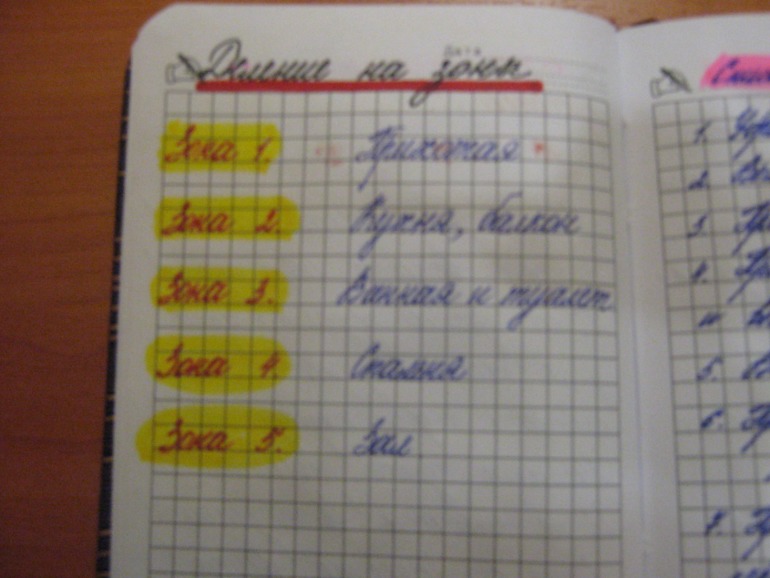 ДАТА
Деление на зоны
Зона 1. Прихожая
Зона 2. Кухня, балкон
Зона 3. Ванная и туалет
Зона 4. Спальня
Зона 5. Зал
1.
2.
3.
4.
5.
6.
7.